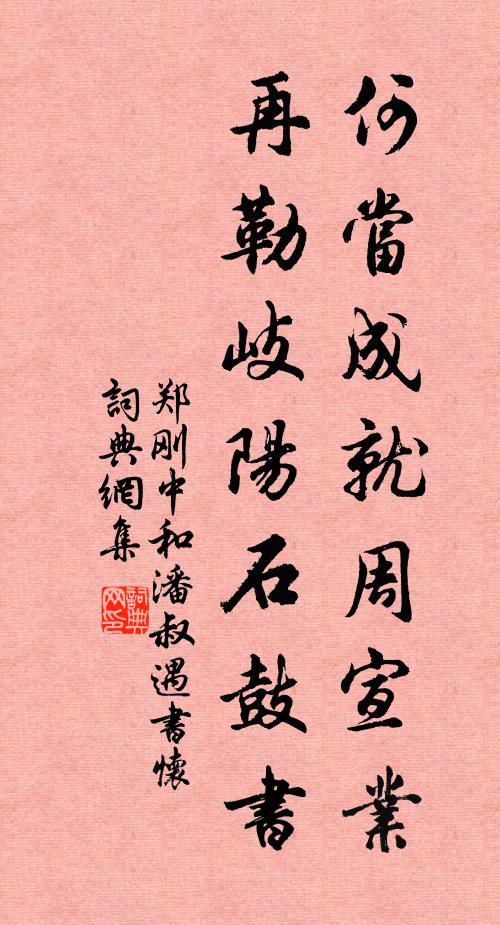 何當成就周宣業
再勒岐陽石鼓書
郑刚中和潘叔遇書懷
詞典網集
詞典网印